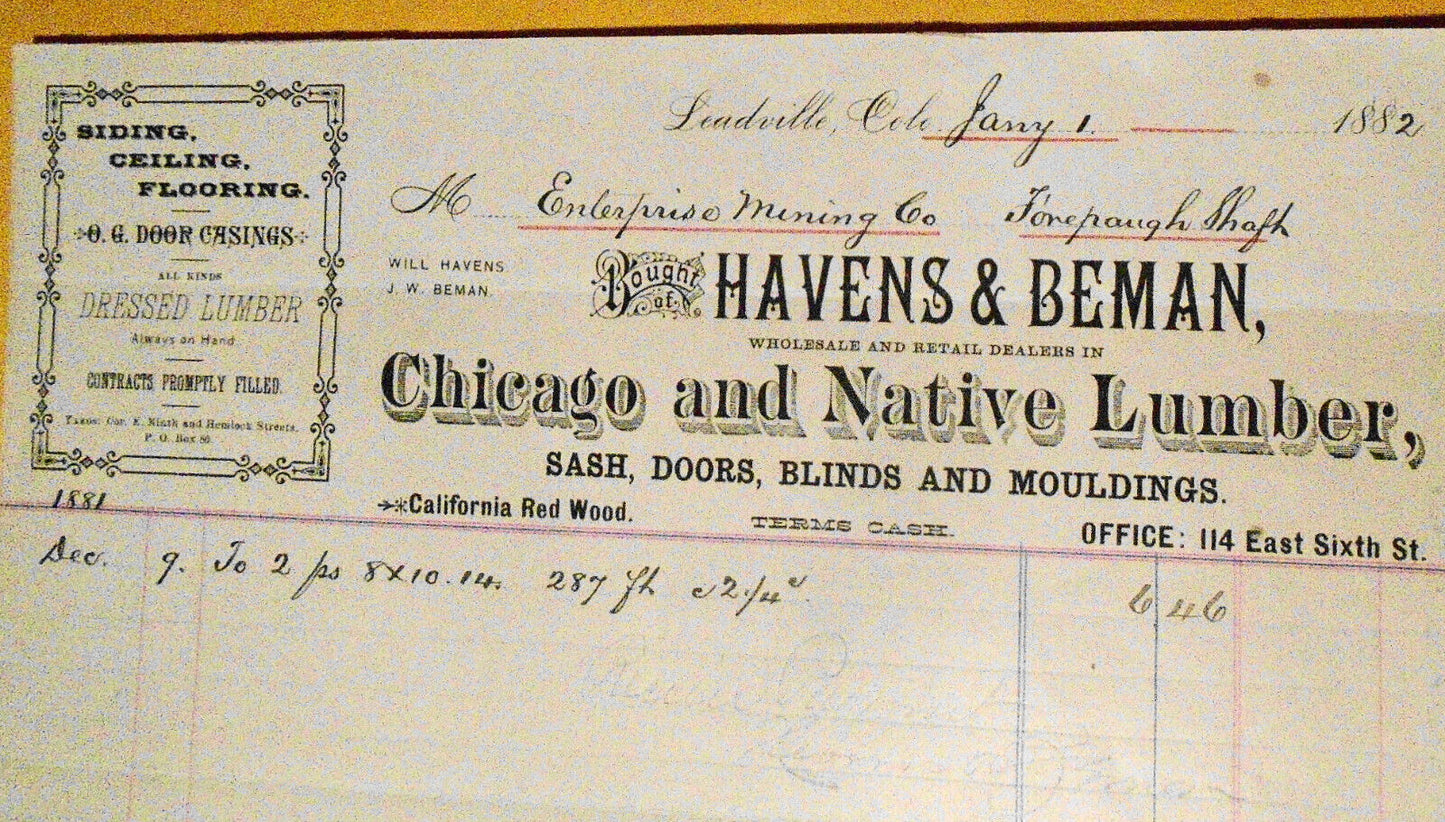 SIDING,
CEILING,
FLOORING.
O. G. DOOR CASINGS
ALL KINDS
DRESSED LUMBER
Always on Hand
CONTRACTS PROMPTLY FILLED.
Yards: Cor. E. Ninth and Hemlock Streets,
P. O. Box 80.
Leadville, Colo Jany 1. 1882
M Enterprise Mining Co Forepaugh Shaft
WILL HAVENS
J. W. BEMAN.
Bought of HAVENS & BEMAN,
WHOLESALE AND RETAIL DEALERS IN
Chicago and Native Lumber,
SASH, DOORS, BLINDS AND MOULDINGS.
California Red Wood.
TERMS CASH.
OFFICE: 114 East Sixth St.
1881
Dec. 9. To 2 ps 8x10.14. 287 ft 6 46